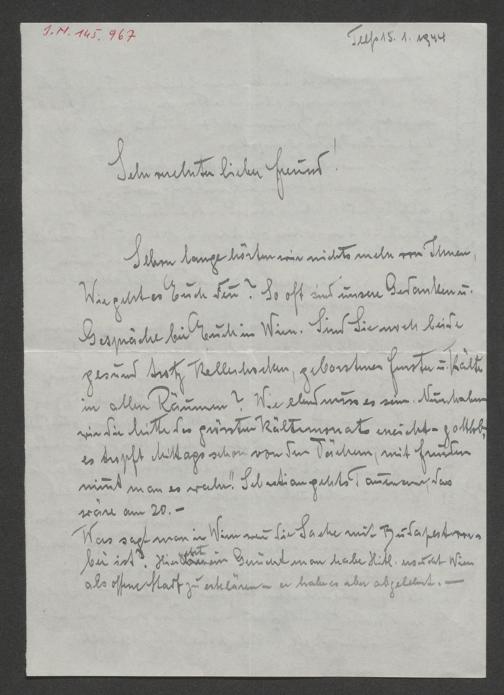 J.N. 145.967
Telfs 15. 1. 1944
Sehr verehrter lieber Freund!
Schon lange hörten wir nichts mehr von Ihnen,
Wie geht es Euch denn? So oft sind unsere Gedanken u.
Gespräche bei Euch in Wien. Sind Sie noch beide
gesund trotz Kellerhocken, geborstener Fenster u. Kälte
in allen Räumen? Wie elend muss es sein. Nun haben
wir die Mitte des grössten Kältemonats erreicht – gottlob,
es tropft Mittags schon von den Dächern, mit Freuden
nimmt man es wahr"! Sebastian gehts Tauen an, das
wäre am 20. –
Was sagt man in Wien wenn die Sache mit Budapest
bei ist? Hier geht ein Gerücht man habe Hitl. ersucht Wien
als offene Stadt zu erklären – er habe es aber abgelehnt. –